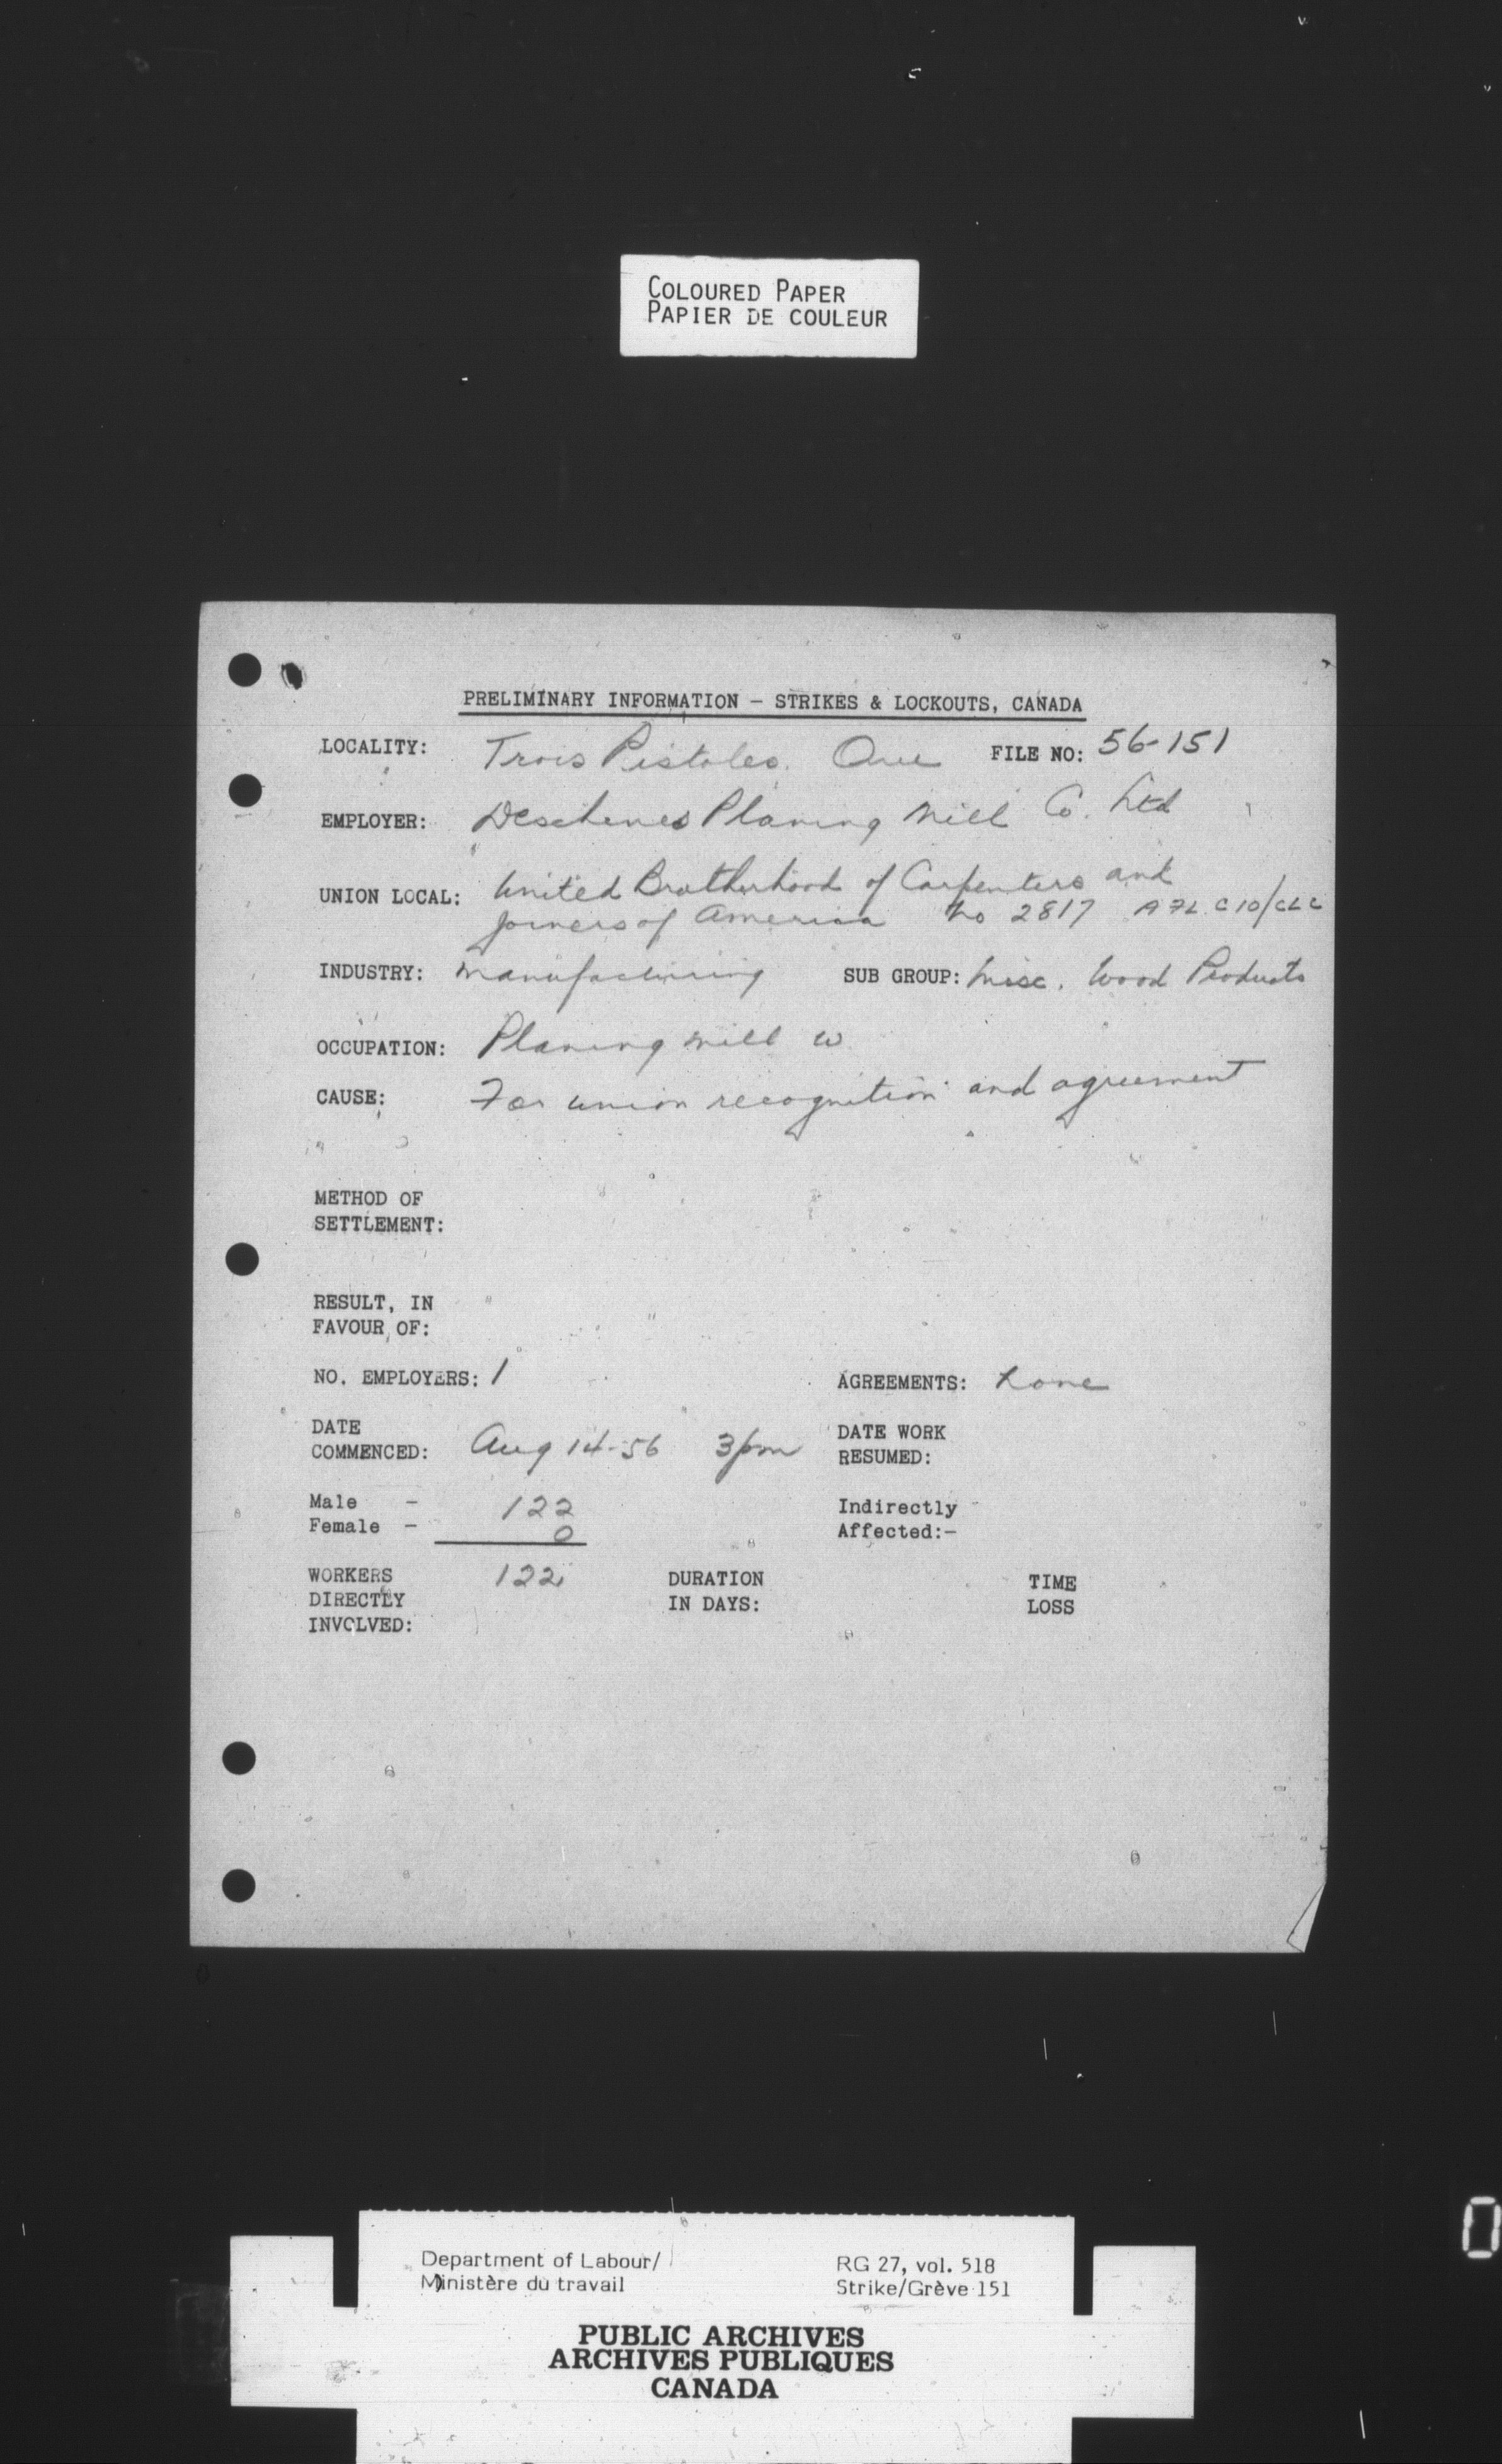 COLOURED PAPER
PAPIER DE COULEUR
PRELIMINARY INFORMATION - STRIKES & LOCKOUTS, CANADA
LOCALITY: Trois Pistoles. Que FILE NO: 56-151
EMPLOYER: Deschenes Planing Mill Co. Ltd
UNION LOCAL: United Brotherhood of Carpenters and
Joiners of America No 2817 AFL CIO/CLC
INDUSTRY: Manufacturing SUB GROUP: Misc. Wood Products
OCCUPATION: Planing mill w
CAUSE: For union recognition and agreement
METHOD OF
SETTLEMENT:
RESULT, IN
FAVOUR OF:
NO. EMPLOYERS: 1 AGREEMENTS: None
DATE
COMMENCED: Aug 14-56 3pm DATE WORK
RESUMED:
Male - 122 Indirectly
Female - 0 Affected:-
WORKERS 122 DURATION TIME
DIRECTLY IN DAYS: LOSS
INVOLVED:
Department of Labour/ RG 27, vol. 518
Ministère du travail Strike/Grève 151
PUBLIC ARCHIVES
ARCHIVES PUBLIQUES
CANADA
0